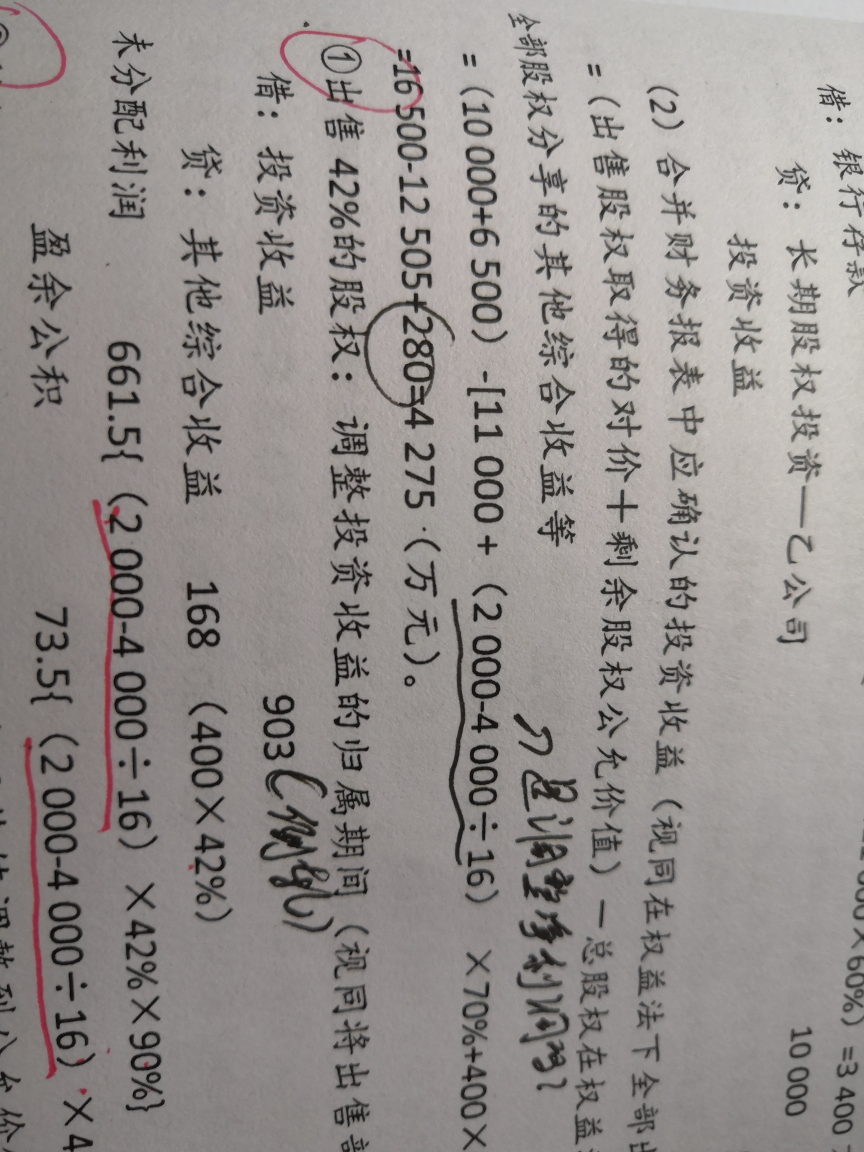 借：银行存款 10 000
贷：长期股权投资—乙公司
×60%）=3 400
投资收益
（2）合并财务报表中应确认的投资收益（视同在权益法下全部出
=（出售股权取得的对价+剩余股权公允价值）—总股权在权益
全部股权分享的其他综合收益等
是调整净利润吗？
=（10 000+6 500）-[11 000+（2 000-4 000÷16）×70%+400×
=16 500-12 505+280=4 275（万元）。
①出售42%的股权：调整投资收益的归属期间（视同将出售部
借：投资收益 903
贷：其他综合收益 168 （400×42%）
未分配利润 661.5{（2 000-4 000÷16）×42%×90%}
盈余公积 73.5{（2 000-4 000÷16）×4